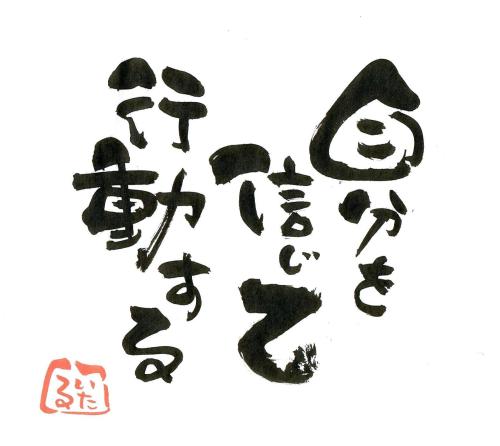 自分を
信じて
行動する
いたる